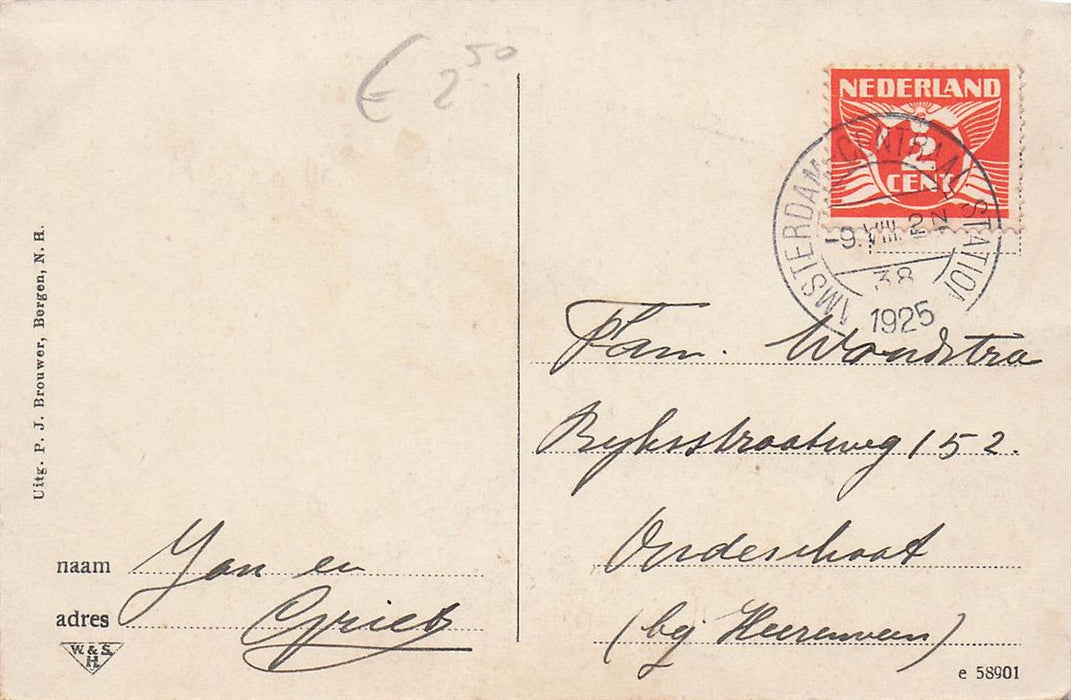 € 2.50
NEDERLAND
2
CENT
AMSTERDAM CENTRAAL STATION
-9.VIII. 2N
38
1925
Fam. Woudstra
Ryksstraatweg 152.
Oudeschoot
(bij Heerenveen)
Uitg. P. J. Brouwer, Bergen, N. H.
naam Jan en
adres Griet
W. & S.
H.
e 58901